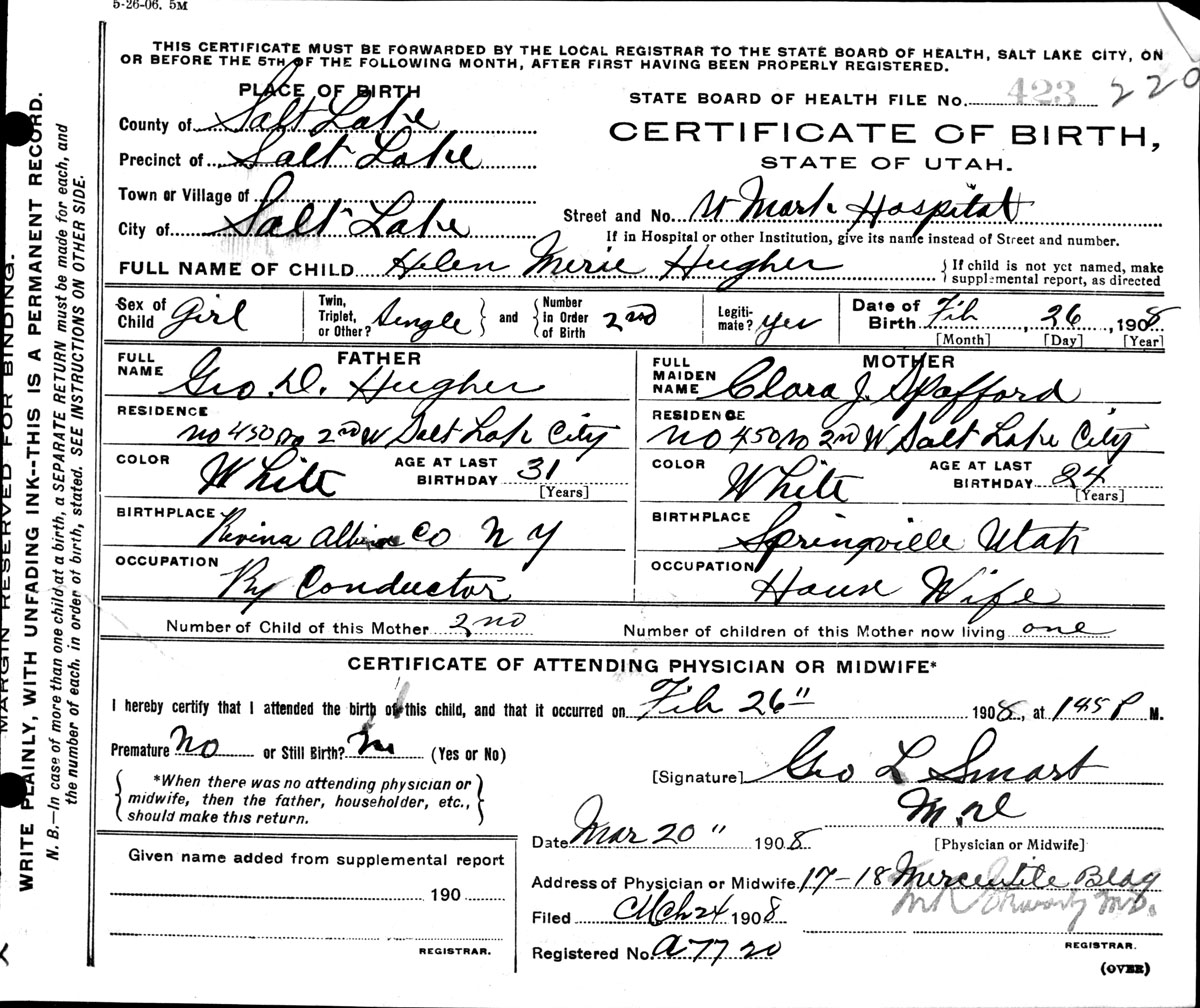 5-26-06. 5M
THIS CERTIFICATE MUST BE FORWARDED BY THE LOCAL REGISTRAR TO THE STATE BOARD OF HEALTH, SALT LAKE CITY, ON
OR BEFORE THE 5TH OF THE FOLLOWING MONTH, AFTER FIRST HAVING BEEN PROPERLY REGISTERED.
PLACE OF BIRTH
STATE BOARD OF HEALTH FILE No. 423 220
County of Salt Lake
CERTIFICATE OF BIRTH,
Precinct of Salt Lake
STATE OF UTAH.
Town or Village of
Street and No. St Mark Hospital
City of Salt Lake
If in Hospital or other Institution, give its name instead of Street and number.
FULL NAME OF CHILD Helen Merie Hugher
{ If child is not yet named, make
supplemental report, as directed
Sex of Child Girl
Twin, Triplet, or Other? Single } and { Number in Order of Birth 2nd
Legiti- mate? Yes
Date of Birth Feb, 26, 1908
[Month] [Day] [Year]
FATHER
FULL NAME Geo. D. Hugher
RESIDENCE
No 450 No 2nd W Salt Lake City
COLOR White
AGE AT LAST BIRTHDAY 31
[Years]
BIRTHPLACE
Co N Y
OCCUPATION
Ry Conductor
MOTHER
FULL MAIDEN NAME Clara J. Spafford
RESIDENCE
No 450 No 2nd W Salt Lake City
COLOR White
AGE AT LAST BIRTHDAY 24
[Years]
BIRTHPLACE
Springville Utah
OCCUPATION
House Wife
Number of Child of this Mother 2nd
Number of children of this Mother now living one
CERTIFICATE OF ATTENDING PHYSICIAN OR MIDWIFE*
I hereby certify that I attended the birth of this child, and that it occurred on Feb 26" 1908, at 145 P M.
Premature No or Still Birth? No (Yes or No)
[Signature] Geo L Smart
M.D
[Physician or Midwife]
{ *When there was no attending physician or
midwife, then the father, householder, etc.,
should make this return. }
Date Mar 20" 1908
Given name added from supplemental report
190
REGISTRAR.
Address of Physician or Midwife. 17-18 Mercantile Bldg
Filed Mch 24 1908
M.D.
Registered No. A7720
REGISTRAR.
(OVER)
MARGIN RESERVED FOR BINDING.
WRITE PLAINLY, WITH UNFADING INK--THIS IS A PERMANENT RECORD.
N. B.—In case of more than one child at a birth, a SEPARATE RETURN must be made for each, and
the number of each, in order of birth, stated. SEE INSTRUCTIONS ON OTHER SIDE.